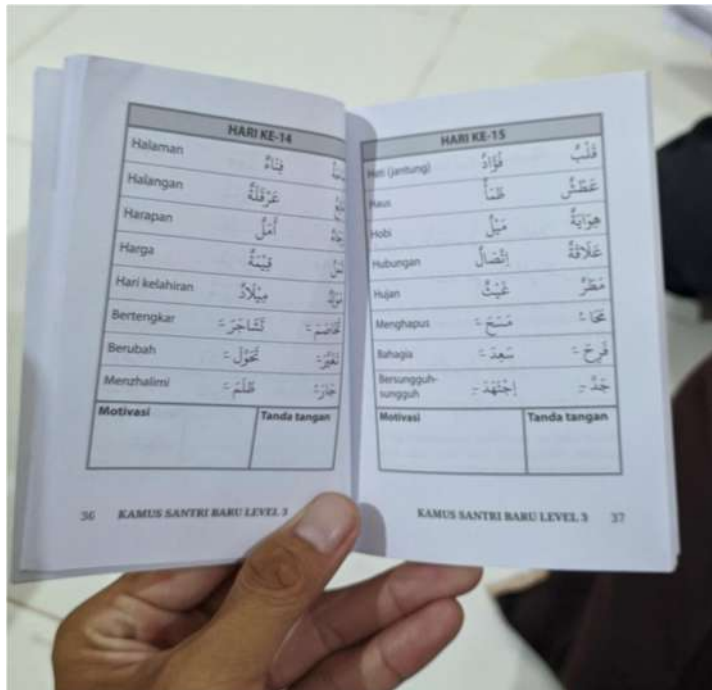 HARI KE-14
Halaman فِنَاءٌ
Halangan عَرْقَلَةٌ
Harapan أَمَلٌ
Harga قِيْمَةٌ
Hari kelahiran مِيْلَادٌ مَوْلِدٌ
Bertengkar تَشَاجَرَ تَخَاصَمَ
Berubah تَحَوَّلَ تَغَيَّرَ
Menzhalimi ظَلَمَ جَارَ
Motivasi Tanda tangan
36 KAMUS SANTRI BARU LEVEL 3
HARI KE-15
Hati (jantung) فُؤَادٌ قَلْبٌ
Haus ظَمَأٌ عَطَشٌ
Hobi مَيْلٌ هِوَايَةٌ
Hubungan اِتِّصَالٌ عَلَاقَةٌ
Hujan غَيْثٌ مَطَرٌ
Menghapus مَسَحَ مَحَا
Bahagia سَعِدَ فَرِحَ
Bersungguh-
sungguh اِجْتَهَدَ جَدَّ
Motivasi Tanda tangan
KAMUS SANTRI BARU LEVEL 3 37